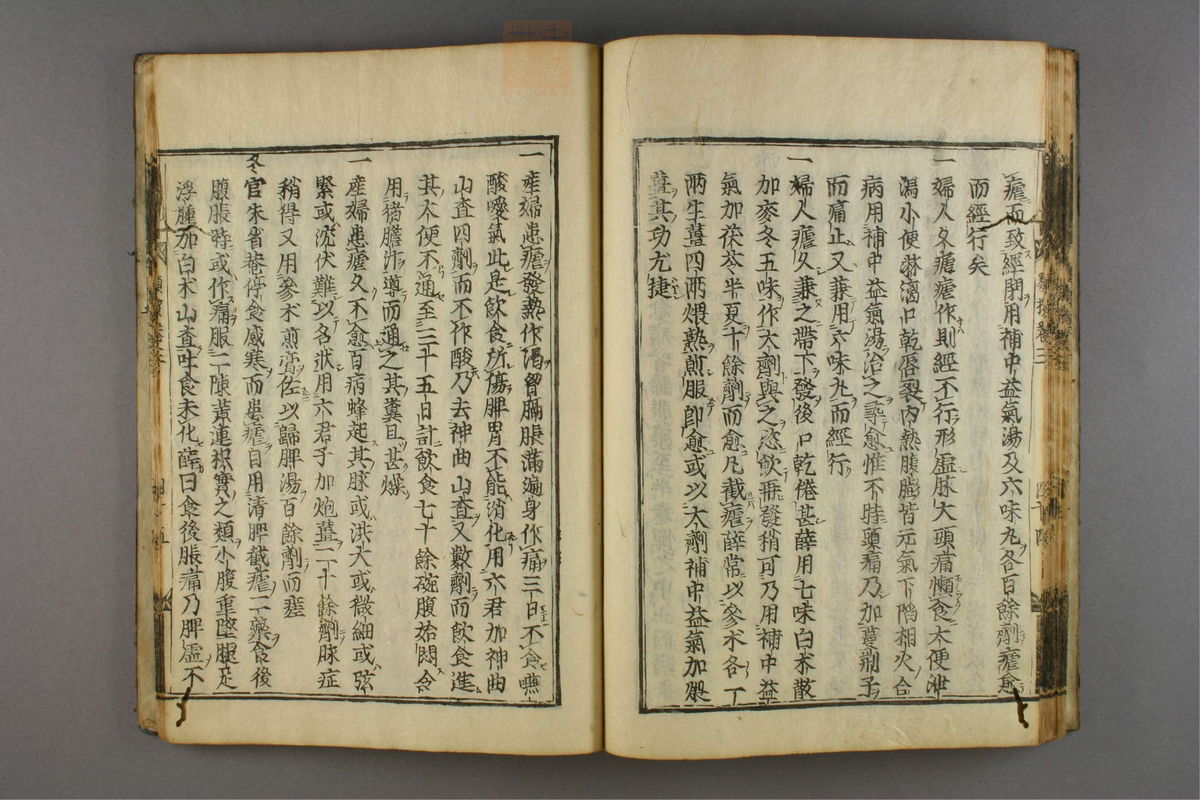 瘧而致經閉用補中益氣湯及六味丸各百餘劑瘧愈
而經行矣
一婦人久瘧瘧作則經不行形虛脉大頭痛懶食大便泄
瀉小便淋滴口乾唇裂內熱腹膨皆元氣下陷相火合
病用補中益氣湯治之尋愈惟不時頭痛乃加蔓荆子
而痛止又兼用六味丸而經行
一婦人瘧久兼之帶下發後口乾倦甚薛用七味白朮散
加麥冬五味作大劑與之恣飲再發稍可乃用補中益
氣加茯苓半夏十餘劑而愈凡截瘧薛常以參朮各一
兩生薑四兩煨熟煎服即愈或以大劑補中益氣加煨
薑其功尤捷
一産婦患瘧發熱作渴胸膈脹滿遍身作痛三日不食嚥
酸噯氣此是飲食所傷脾胃不能消化用六君加神曲
山查四劑而不作酸乃去神曲山查又數劑而飲食進
其大便不通至三十五日計飲食七十餘碗腹始悶令
用猪膽汁導而通之其糞且甚燥
一産婦患瘧久不愈百病蜂起其脉或洪大或微細或弦
緊或沈伏難以名狀用六君子加炮薑二十餘劑脉症
稍得又用參朮煎膏佐以歸脾湯百餘劑而痊
冬官朱省菴停食感寒而患瘧自用清脾截瘧二藥食後
腹脹時或作痛服二陳黃連枳實之類小腹重墜腿足
浮腫加白朮山查吐食未化薛曰食後脹痛乃脾虛不